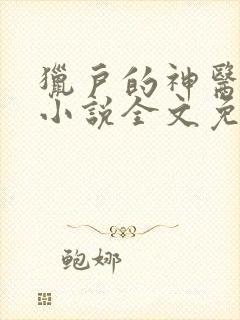 獵戶的神醫
小說全文免
鲍娜